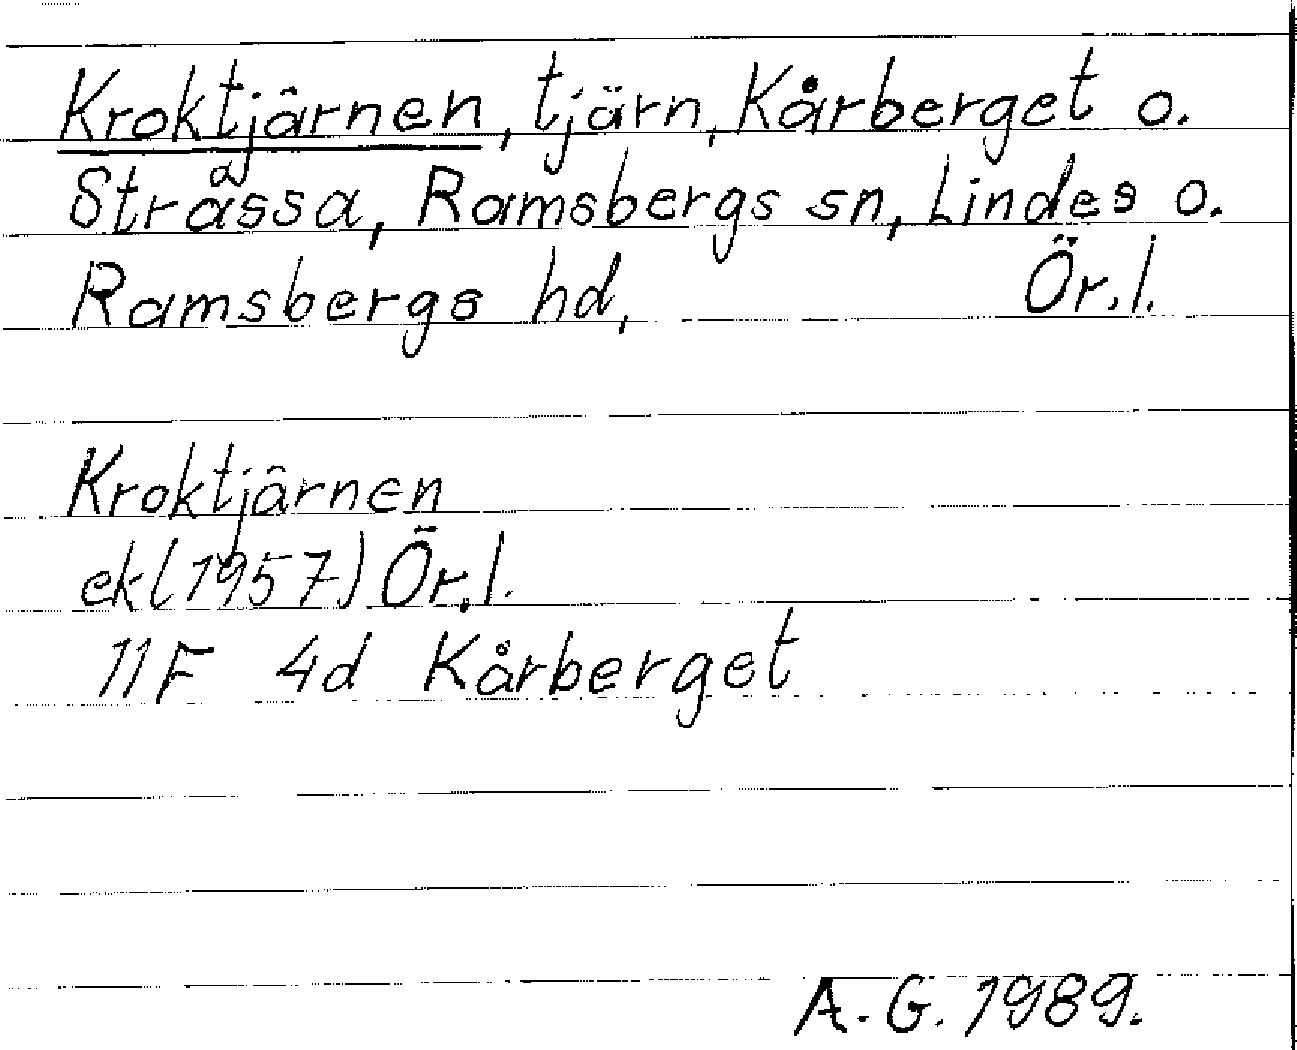 Kroktjärnen, tjärn, Kårberget o.
Stråssa, Ramsbergs sn, Lindes o.
Ramsbergs hd, Ör. l.
Kroktjärnen
ek (1957) Ör. l.
11F 4d Kårberget
A. G. 1989.